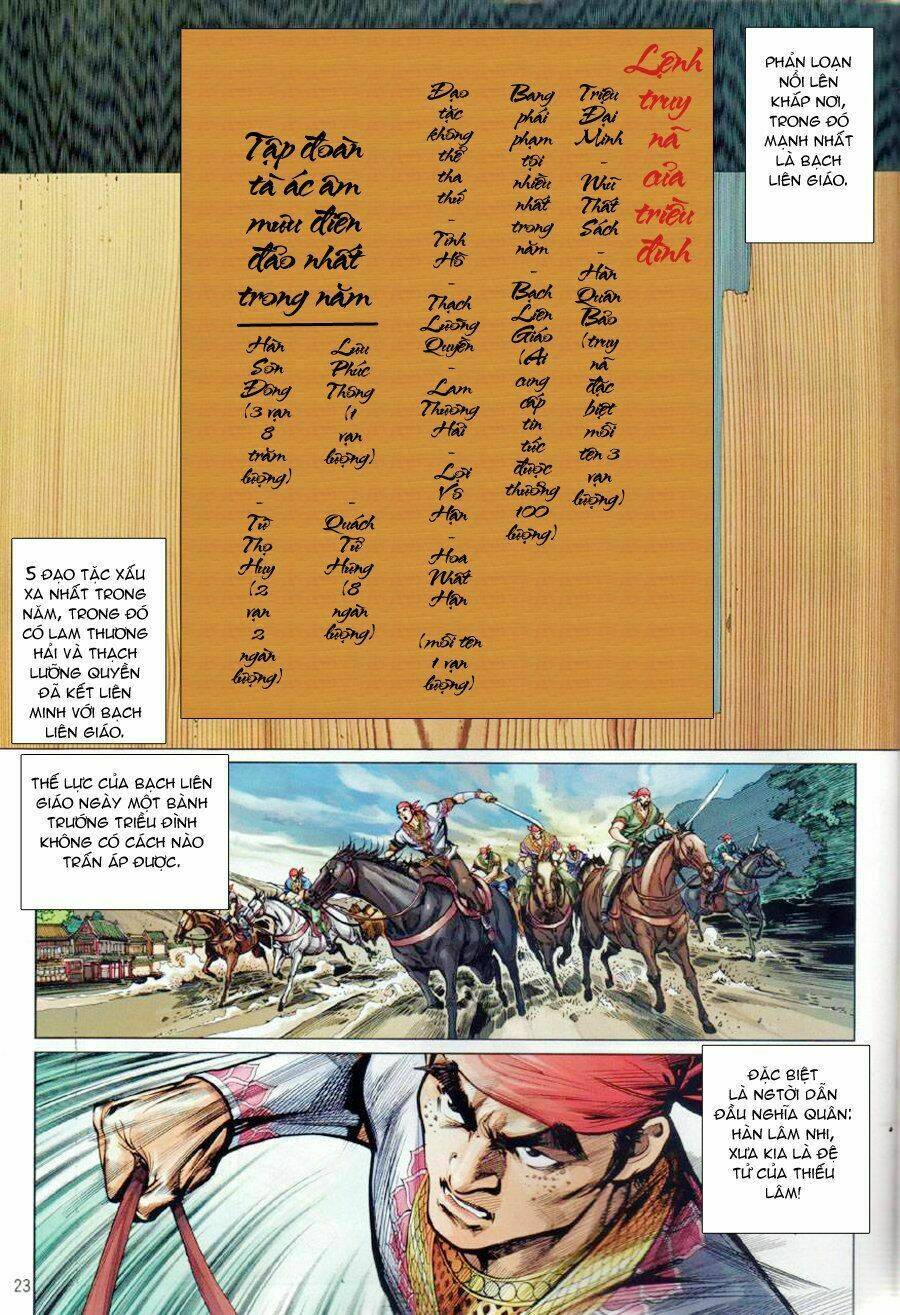 PHẢN LOẠN
NỔI LÊN
KHẮP NƠI,
TRONG ĐÓ
MẠNH NHẤT
LÀ BẠCH
LIÊN GIÁO.
Lệnh
truy
nã
của
triều
đình
Triệu
Đại
Minh
-
Nhữ
Thất
Sách
-
Hán
Quân
Bảo
(truy
nã
đặc
biệt
mỗi
tên 3
vạn
lượng)
Bang
phái
phạm
tội
nhiều
nhất
trong
năm
-
Bạch
Liên
Giáo
(Ai
cung
cấp
tin
tức
được
thưởng
100
lượng)
Đạo
tặc
không
thể
tha
thứ
-
Tinh
Hồ
-
Thạch
Lưỡng
Quyền
-
Lam
Thương
Hải
-
Lợi
Vô
Hạn
-
Hoa
Nhất
Hạn
(mỗi tên
1 vạn
lượng)
Tập đoàn
tà ác âm
mưu điên
đảo nhất
trong năm
Lưu
Phúc
Thông
(1
vạn
lượng)
-
Quách
Tử
Hưng
(8
ngàn
lượng)
Hàn
Sơn
Đồng
(3 vạn
8
trăm
lượng)
-
Từ
Thọ
Huy
(2
vạn
2
ngàn
lượng)
5 ĐẠO TẶC XẤU
XA NHẤT TRONG
NĂM, TRONG ĐÓ
CÓ LAM THƯƠNG
HẢI VÀ THẠCH
LƯỠNG QUYỀN
ĐÃ KẾT LIÊN
MINH VỚI BẠCH
LIÊN GIÁO.
THẾ LỰC CỦA BẠCH LIÊN
GIÁO NGÀY MỘT BÀNH
TRƯỚNG TRIỀU ĐÌNH
KHÔNG CÓ CÁCH NÀO
TRẤN ÁP ĐƯỢC.
ĐẶC BIỆT
LÀ NGTỜI DẪN
ĐẦU NGHĨA QUÂN:
HÀN LÂM NHI,
XƯA KIA LÀ ĐỆ
TỬ CỦA THIẾU
LÂM!
23